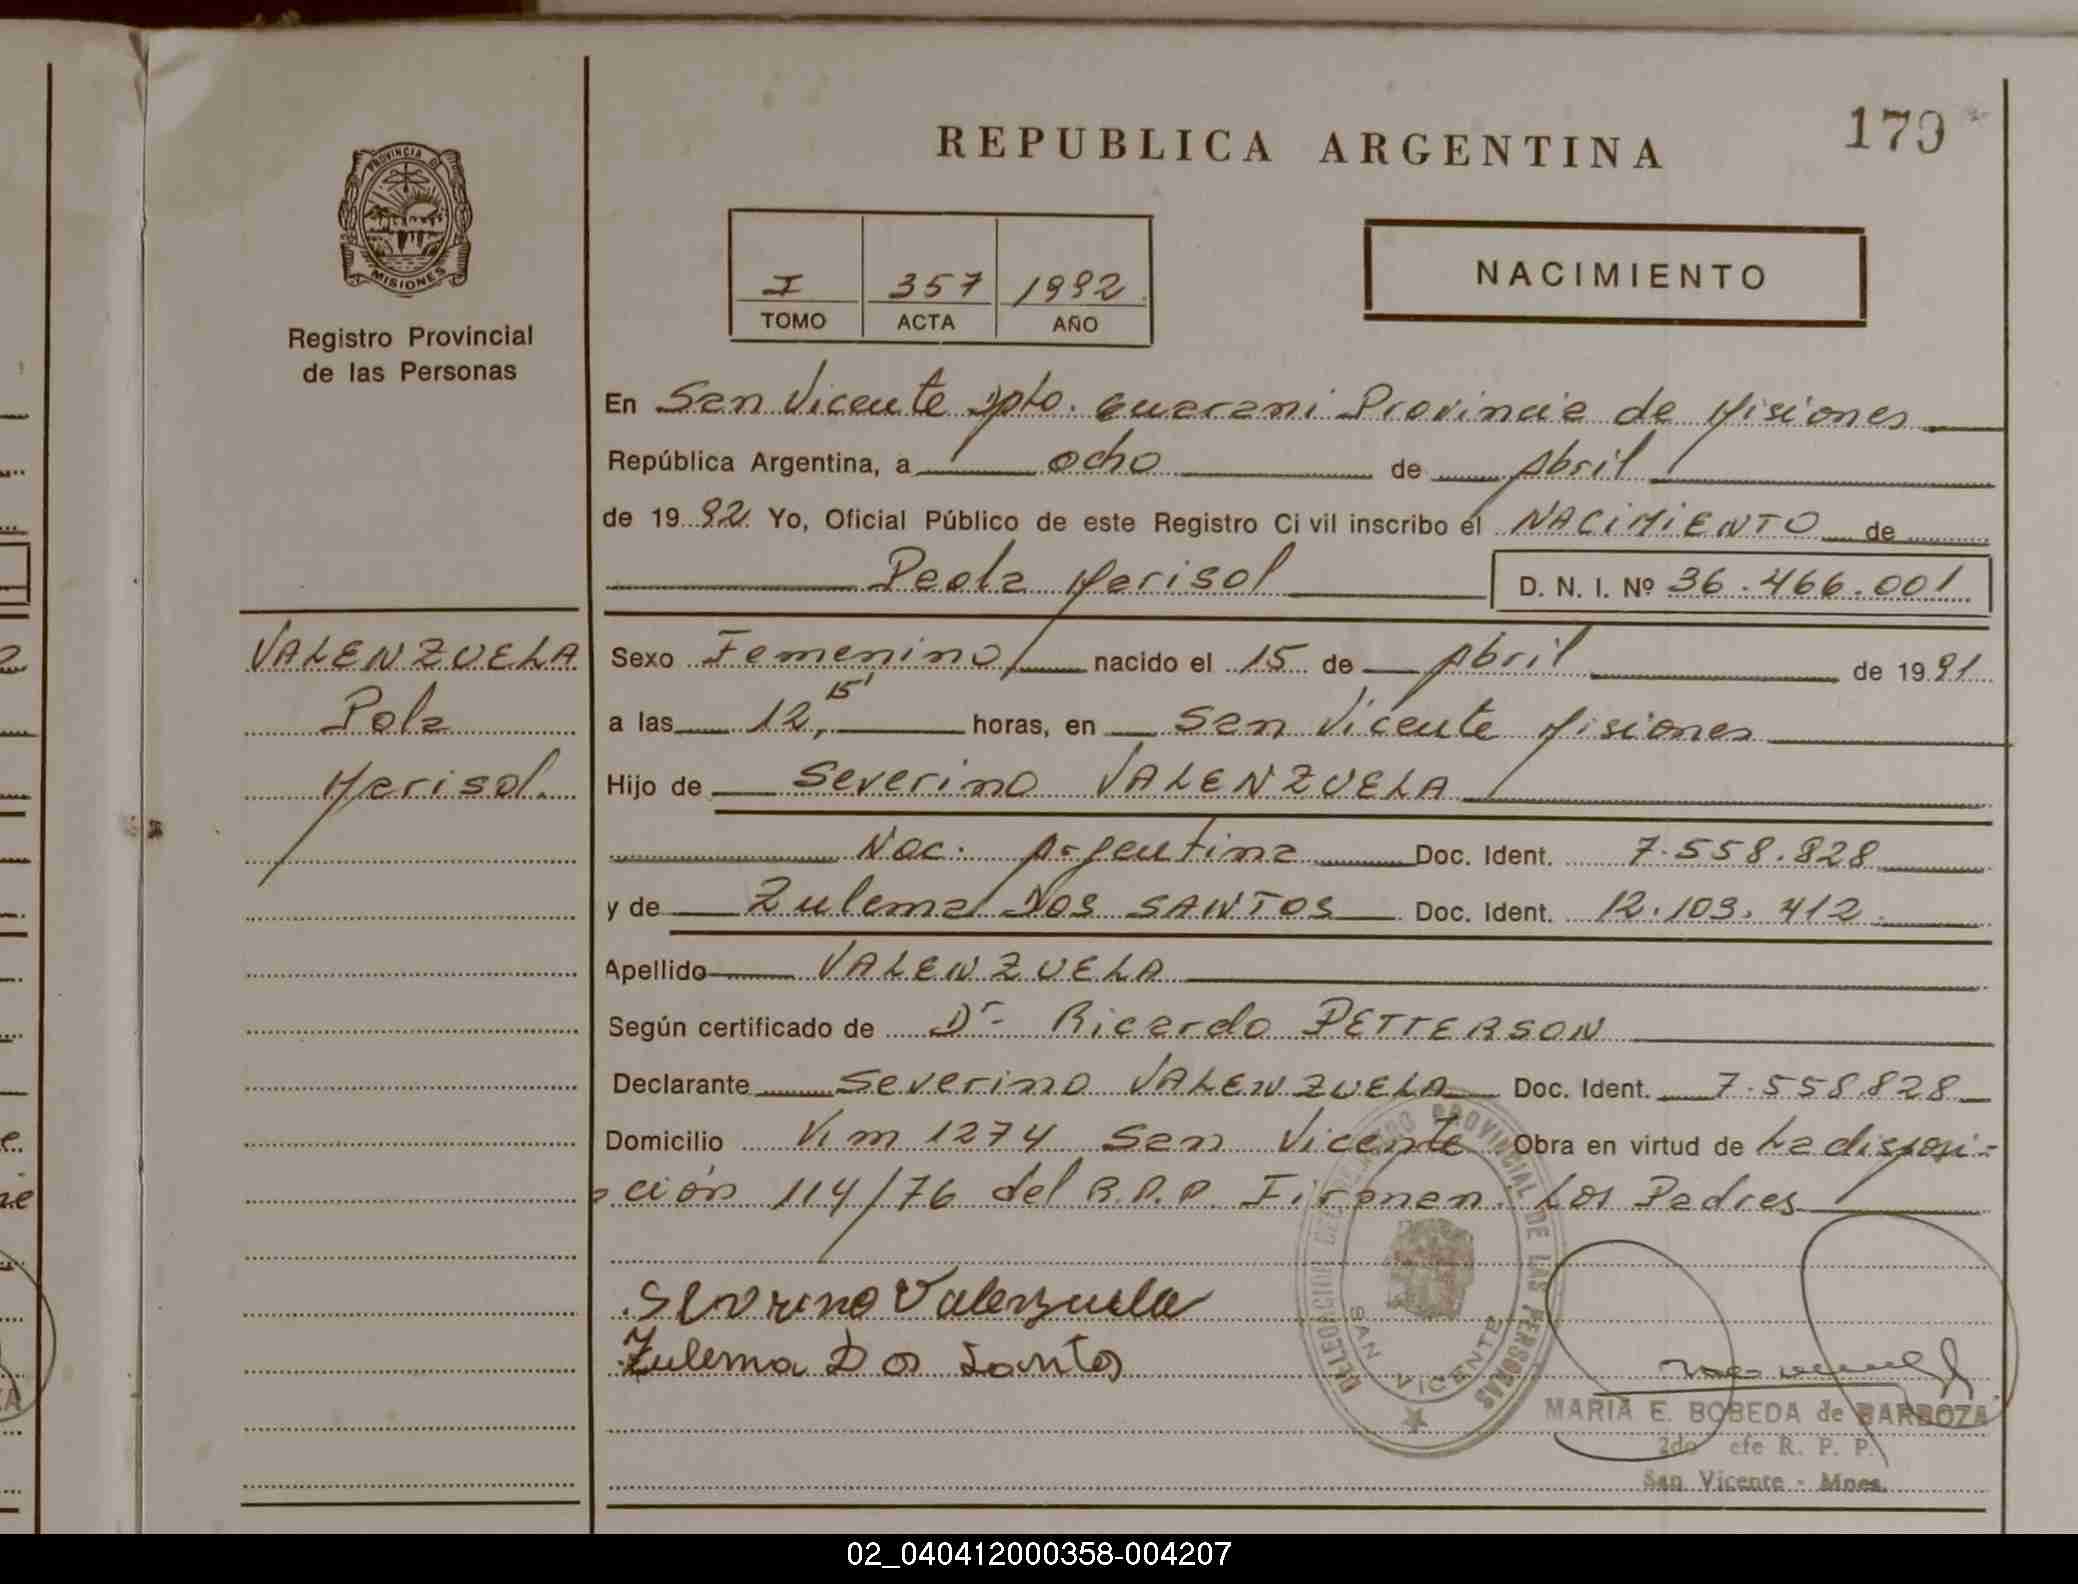 REPUBLICA ARGENTINA
179
PROVINCIA D
MISIONES
Registro Provincial
de las Personas
I 357 1992
TOMO ACTA AÑO
NACIMIENTO
En San Vicente Dpto. Guarani Provincia de Misiones
República Argentina, a ocho de Abril
de 1992 Yo, Oficial Público de este Registro Civil inscribo el NACIMIENTO de
Paola Marisol D. N. I. Nº 36.466.001
VALENZUELA
Pola
Marisol.
Sexo Femenino nacido el 15 de Abril de 1991
a las 12,15' horas, en San Vicente Misiones
Hijo de Severino VALENZUELA
Nac. Argentina Doc. Ident. 7.558.828
y de Zulema DOS SANTOS Doc. Ident. 12.103.412
Apellido VALENZUELA
Según certificado de Dr. Ricardo PETTERSON
Declarante Severino VALENZUELA Doc. Ident. 7.558.828
Domicilio Km 1274 San Vicente Obra en virtud de La disposi-
ción 114/76 del R.P.P. Firman Los Padres
Severino Valenzuela
Zulema Dos Santos
PROVINCIAL DE LAS PERSONAS
SAN VICENTE
MARIA E. BOBEDA de BARBOZA
2do efe R. P. P.
San Vicente - Mnes.
02_040412000358-004207